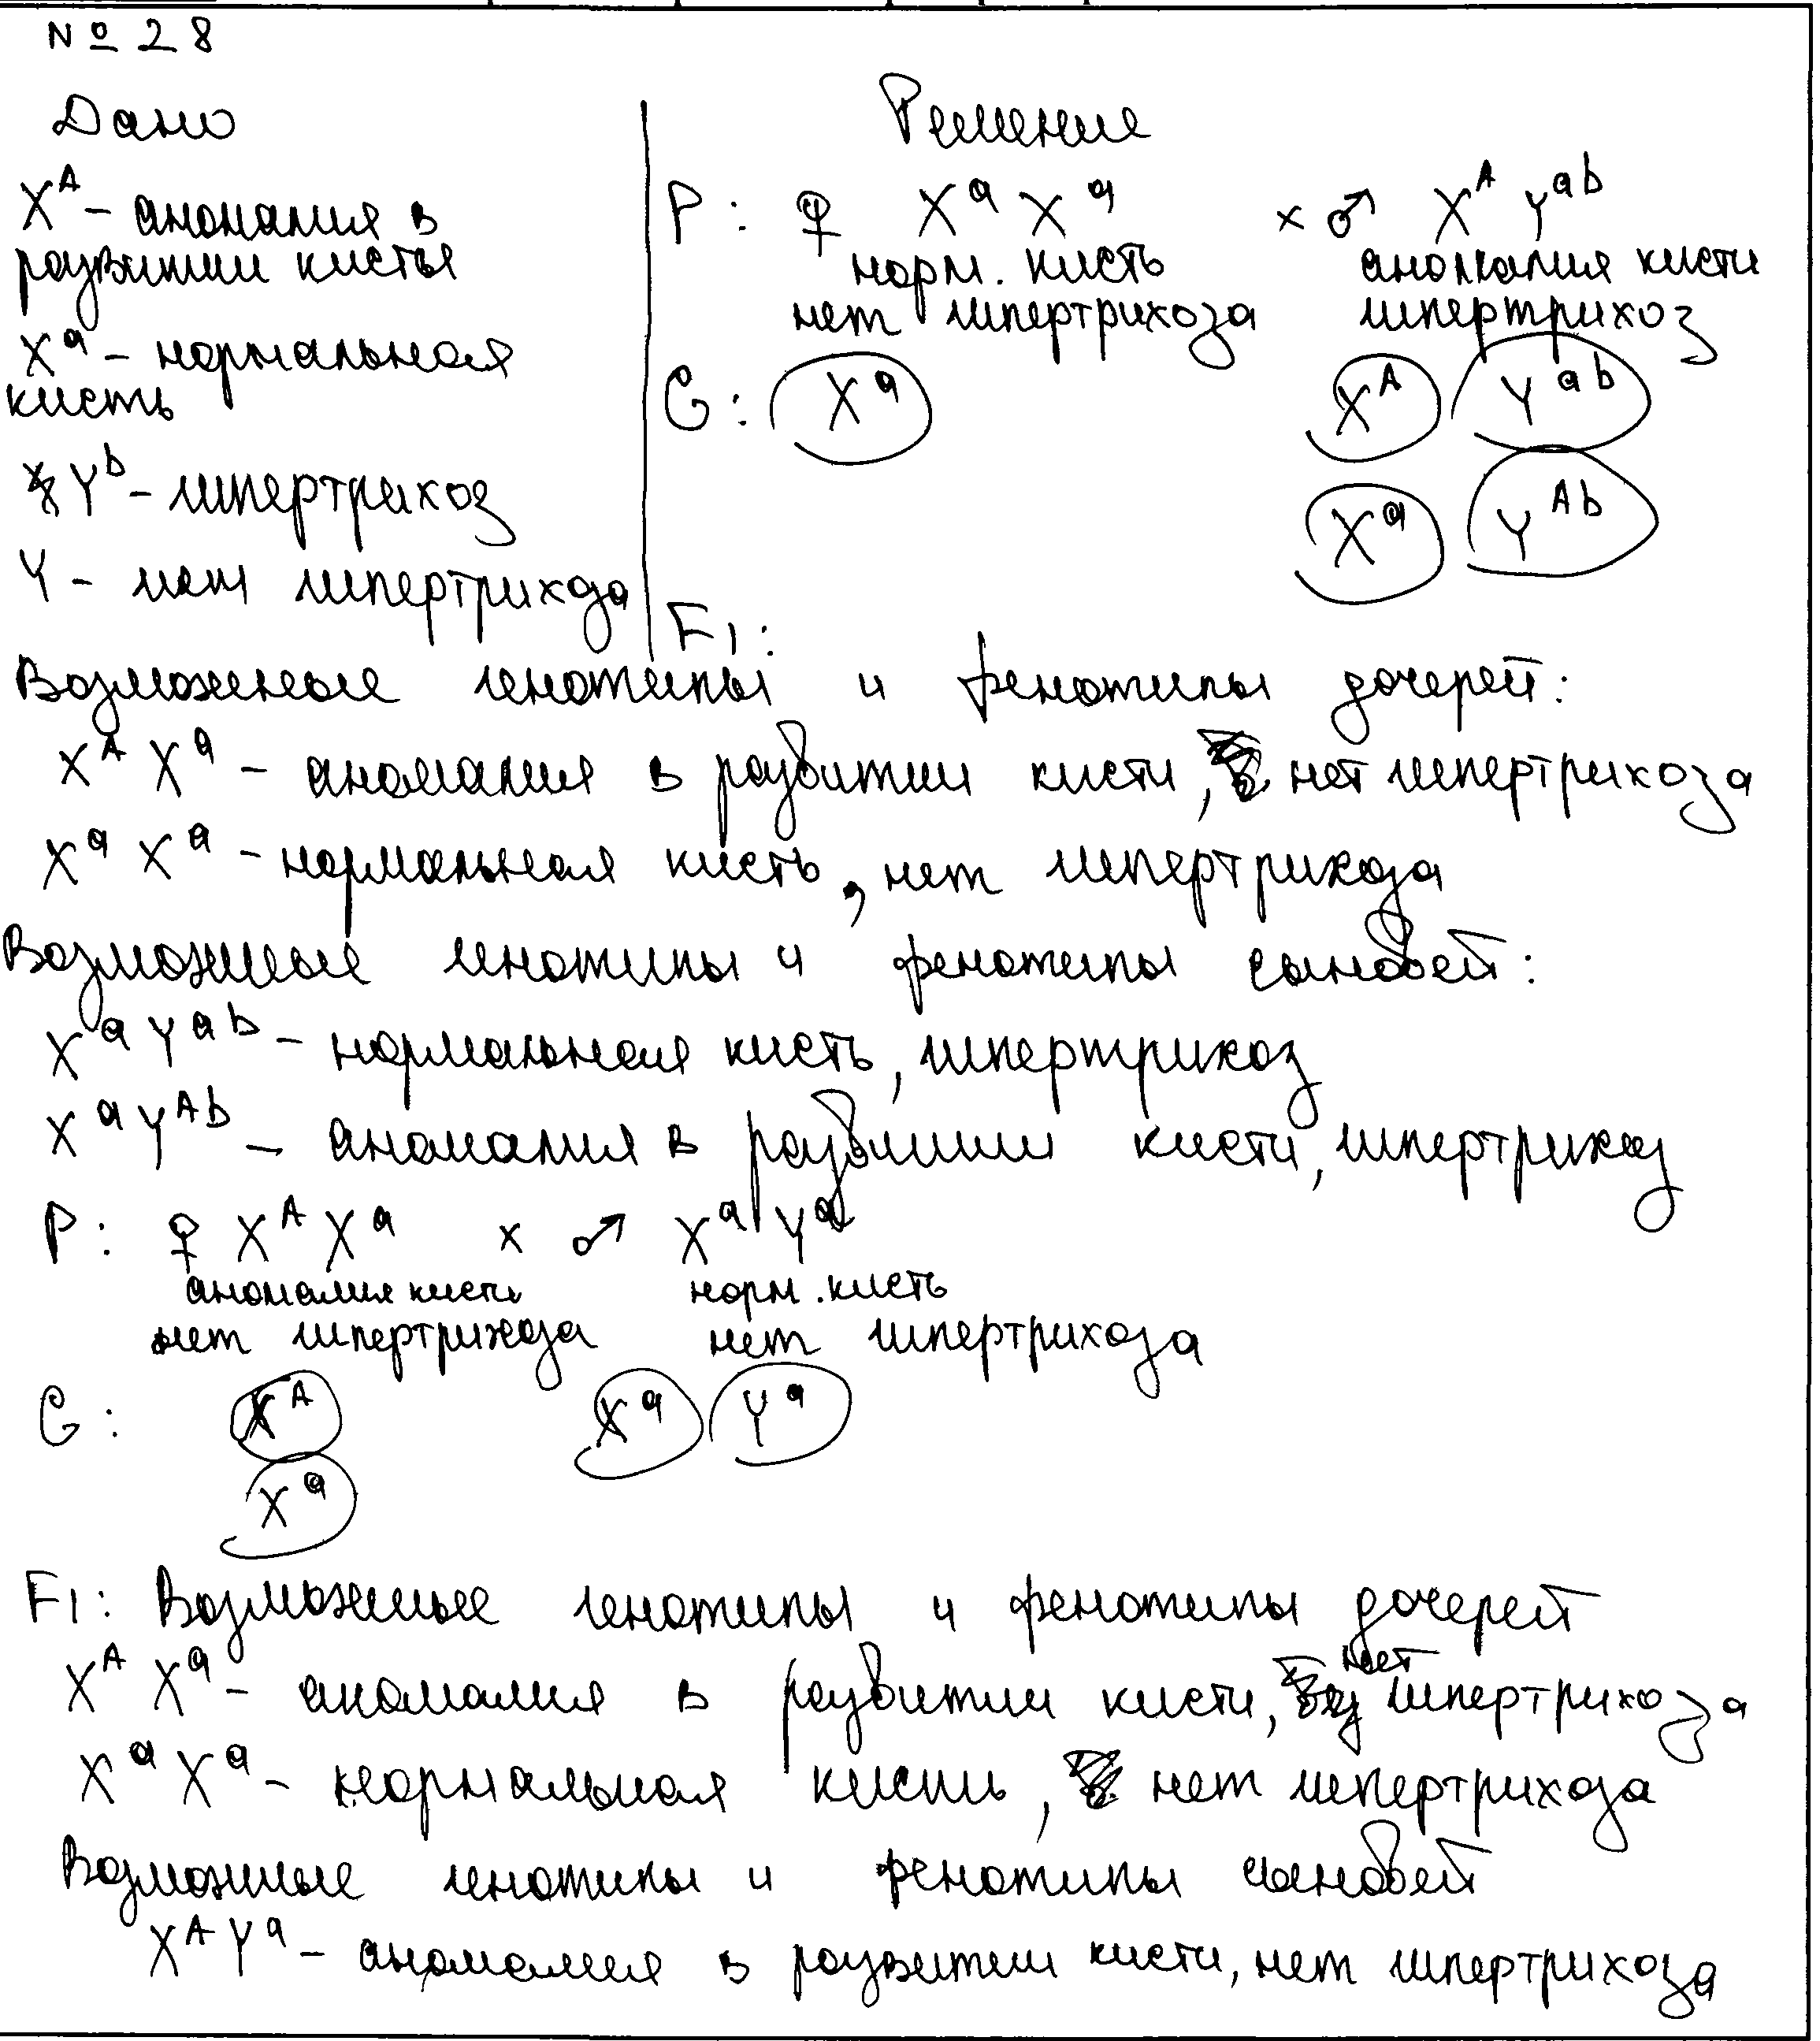 № 28
Дано
Решение
X^A – аномалия в
развитии кистья
X^a – нормальная
кисть
Y^b – гипертрихоз
Y – нет гипертрихоза
P: ♀ X^a X^a × ♂ X^A Y^ab
норм. кисть аномалия кисти
нет гипертрихоза гипертрихоз
G: X^a X^A Y^ab
X^a Y^Ab
F1:
Возможные генотипы и фенотипы дочерей:
X^A X^a – аномалия в развитии кисти, нет гипертрихоза
X^a X^a – нормальная кисть, нет гипертрихоза
Возможные генотипы и фенотипы сыновей:
X^a Y^ab – нормальная кисть, гипертрихоз
X^a Y^Ab – аномалия в развитии кисти, гипертрихоз
P: ♀ X^A X^a × ♂ X^a Y^a
аномалия кисти норм. кисть
нет гипертрихоза нет гипертрихоза
G: X^A X^a Y^a
X^a
F1: Возможные генотипы и фенотипы дочерей
X^A X^a – аномалия в развитии кисти, нет гипертрихоза
X^a X^a – нормальная кисть, нет гипертрихоза
Возможные генотипы и фенотипы сыновей
X^A Y^a – аномалия в развитии кисти, нет гипертрихоза